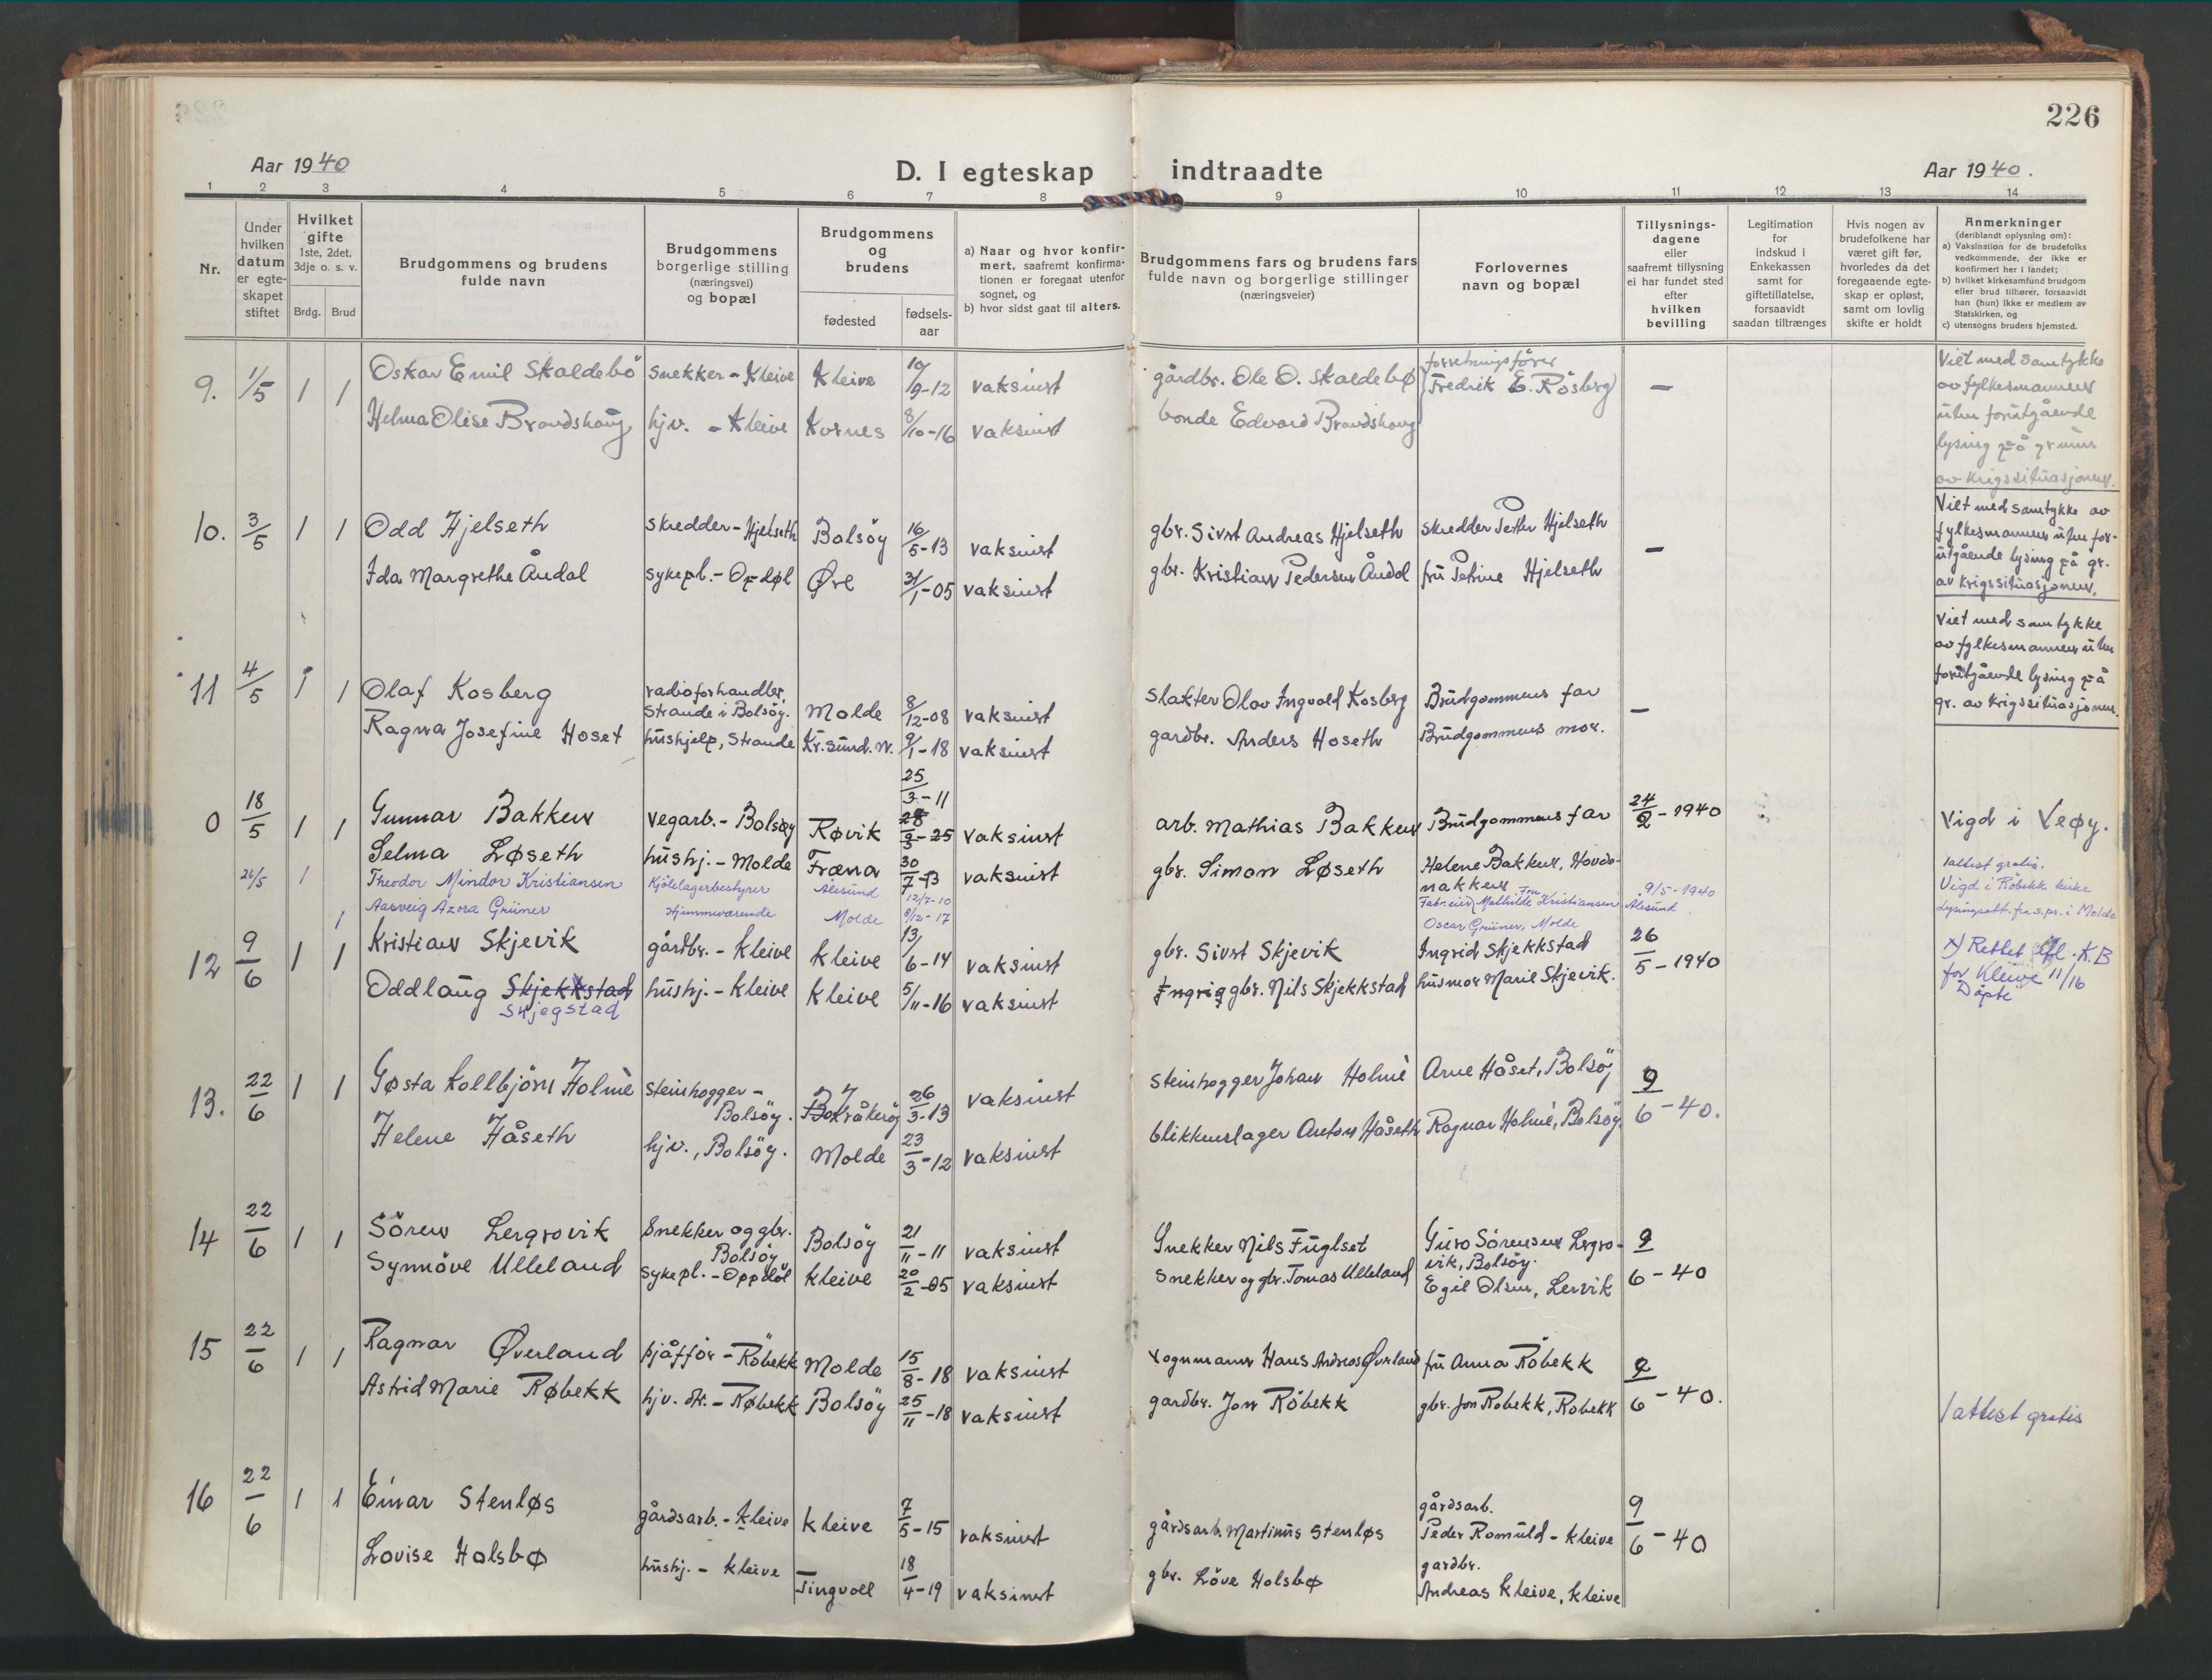 226
Aar 1940
D. I egteskap indtraadte
Aar 1940.
1 2 3 4 5 6 7 8 9 10 11 12 13 14
Nr.
Under hvilken datum er egteskapet stiftet
Hvilket gifte 1ste, 2det, 3dje o. s. v.
Brdg. Brud
Brudgommens og brudens fulde navn
Brudgommens borgerlige stilling (næringsvei) og bopæl
Brudgommens og brudens
fødested
fødselsaar
a) Naar og hvor konfirmert, saafremt konfirmationen er foregaat utenfor sognet, og
b) hvor sidst gaat til alters.
Brudgommens fars og brudens fars fulde navn og borgerlige stillinger (næringsveier)
Forlovernes navn og bopæl
Tillysningsdagene eller saafremt tillysning ei har fundet sted efter hvilken bevilling
Legitimation for indskud i Enkekassen samt for giftetillatelse, forsaavidt saadan tiltrænges
Hvis nogen av brudefolkene har været gift før, hvorledes da det foregaaende egteskap er opløst, samt om lovlig skifte er holdt
Anmerkninger
(deriblandt oplysning om):
a) Vaksination for de brudefolks vedkommende, der ikke er konfirmert her i landet;
b) hvilket kirkesamfund brudgom eller brud tilhører, forsaavidt han (hun) ikke er medlem av Statskirken, og
c) utensogns bruders hjemsted.
9. 1/5 1 1 Oskar Emil Skaldebö snekker - Kleive Kleive 10/9-12 vaksinert gårdbr. Ole O. Skaldebø forretningsfører Fredrik E. Rösberg —
Helma Olise Brandshaug hjv. - Kleive Kornes 8/10-16 vaksinert bonde Edvard Brandshaug
Viet med samtykke
av fylkesmannen
uten forutgående
lysing på grunn
av krigssituasjonen.
10. 3/5 1 1 Odd Hjelseth skredder - Hjelseth Bolsöy 16/5-13 vaksinert gbr. Sivert Andreas Hjelseth skredder Petter Hjelseth —
Ida Margrethe Åndal sykepl. - Opdøl Øre 31/1-05 vaksinert gbr. Kristian Pedersen Åndal fru Petrine Hjelseth
Viet med samtykke av
fylkesmannen uten for-
utgående lysing på gr.
av krigssituasjonen.
11 4/5 1 1 Olaf Kosberg radioforhandler, Strande i Bolsöy. Molde 8/12-08 vaksinert slakter Olav Ingvald Kosberg Brudgommens far —
Ragna Josefine Hoset hushjelp, Strande Kr.sund. N. 9/1-18 vaksinert gardbr. Anders Hoseth Brudgommens mor.
Viet med samtykke
av fylkesmannen uten
forutgående lysing på
gr. av krigssituasjonen.
0 18/5 1 1 Gunnar Bakken vegarb. - Bolsøy Røvik 25/3-11 vaksinert arb. Mathias Bakken Brudgommens far 24/2-1940 Vigd i Veøy.
Selma Løseth hushj. - Molde Fræna 30/7-13 vaksinert gbr. Simon Løseth Helene Bakken, Hovdenakken 1 attest gratis.
26/5 1 Theodor Mindor Kristiansen Kjølelagerbestyrer Ålesund 12/7-10 Fru Mathilde Kristiansen Ålesund 9/5-1940 Vigd i Röbekk kirke
1 Aasveig Azora Grüner Hjemmeværende Molde 8/12-17 Oscar Grüner, Molde Lysingsatt. fra s.pr. i Molde
12 9/6 1 1 Kristian Skjevik gårdbr. - Kleive Kleive 13/6-14 vaksinert gbr. Sivert Skjevik Ingrid Skjekkstad 26/5-1940
Oddlaug Skjekkstad hushj. - Kleive Kleive 5/11-16 vaksinert gbr. Nils Skjekkstad husmor Marie Skjevik.
Skjegstad
x) Rettet ifl. K.B
for Kleive 11/16
"Døpte"
13. 22/6 1 1 Gøsta Kollbjörn Holmè steinhogger - Bolsöy. 26/3-13 vaksinert steinhogger Johan Holmè Arne Håset, Bolsöy 9/6-40.
Helene Håseth hjv., Bolsöy. Molde 23/3-12 vaksinert blikkenslager Anton Håseth Ragnar Holmè, Bolsöy
14 22/6 1 1 Sören Lergrovik Snekker og gbr. Bolsöy Bolsöy 21/11-11 vaksinert Snekker Nils Fuglset Guro Sörensen Lergrovik, Bolsöy. 9/6-40
Synnöve Ulleland sykepl. - Oppdöl Kleive 20/2-05 vaksinert Snekker og gbr. Tomas Ulleland Egil Olsen, Lervik
15 22/6 1 1 Ragnar Øverland sjåffør - Röbekk Molde 15/8-18 vaksinert vognmann Hans Andreas Øverland fru Anna Röbekk 9/6-40.
Astrid Marie Røbekk hjv. dtr. - Røbekk Bolsöy 25/11-18 vaksinert gardbr. Jon Röbekk gbr. Jon Röbekk, Röbekk 1 attest gratis
16 22/6 1 1 Einar Stenløs gårdsarb. - Kleive Kleive 7/5-15 vaksinert gårdsarb. Martinus Stenløs gårdsarb. Peder Romuld - Kleive 9/6-40
Lovise Holsbø hushj. - Kleive Tingvoll 18/4-19 vaksinert gbr. Löve Holsbø gardbr. Andreas Kleive, Kleive